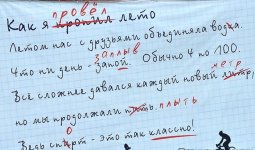 провёл
Как я пропил лето
Летом нас с друзьями объединяла водка.
заплыв
Что ни день – запой. Обычно 4 по 100.
метр
Всё сложнее давался каждый новый литр,
но мы продолжали пить. плыть
о
Ведь спирт – это так классно!